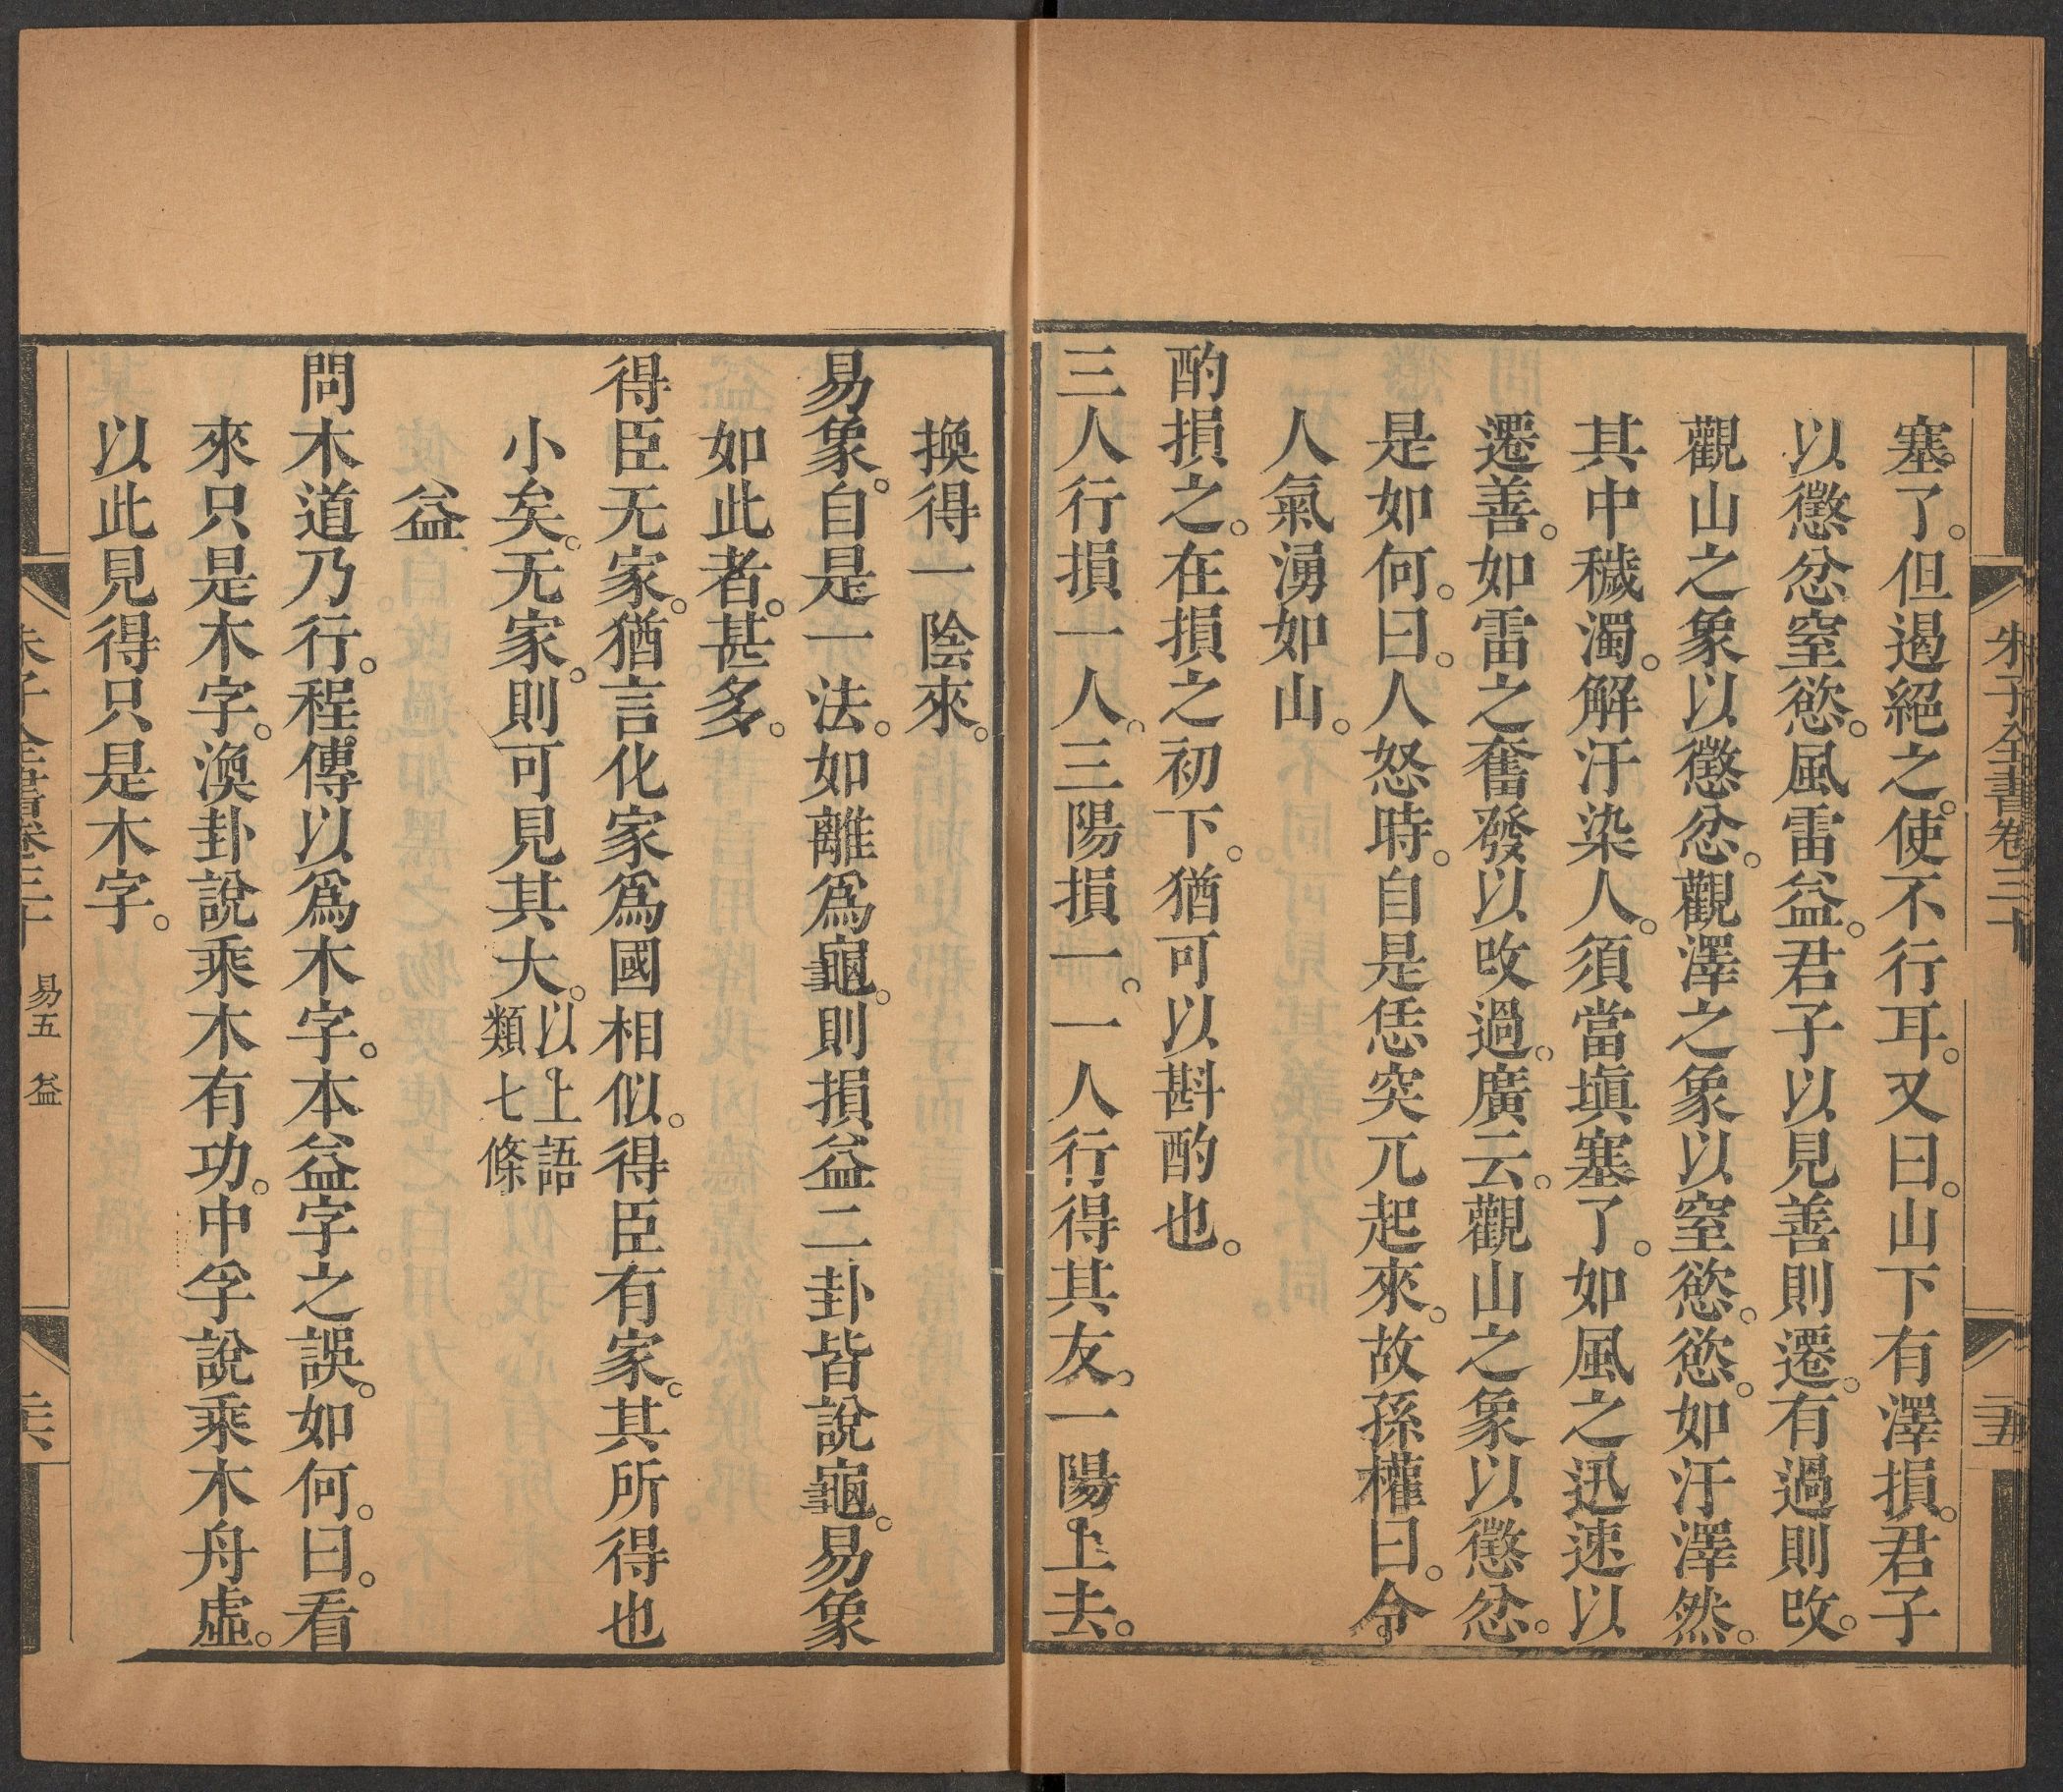 朱子全書卷三十
二十五
塞了。但遏絕之。使不行耳。又曰。山下有澤損。君子
以懲忿窒慾。風雷益。君子以見善則遷。有過則改。
觀山之象以懲忿。觀澤之象以窒慾。慾。如汙澤然。
其中穢濁。解汙染人。須當塡塞了。如風之迅速以
遷善。如雷之奮發以改過。廣云。觀山之象以懲忿。
是如何。曰。人怒時。自是恁突兀起來。故孫權曰。令
人氣湧如山。
酌損之。在損之初下。猶可以斟酌也。
三人行損一人。三陽損一。一人行得其友。一陽上去。
換得一陰來。
易象。自是一法。如離爲龜。則損益二卦皆說龜。易象
如此者。甚多。
得臣无家。猶言化家爲國相似。得臣有家。其所得也
小矣。无家。則可見其大。以上語
類七條
益
問木道乃行。程傳以爲木字。本益字之誤。如何。曰。看
來只是木字。渙卦說乘木有功。中孚說乘木舟虛。
以此見得只是木字。
朱子全書卷三十
易五 益
二十六